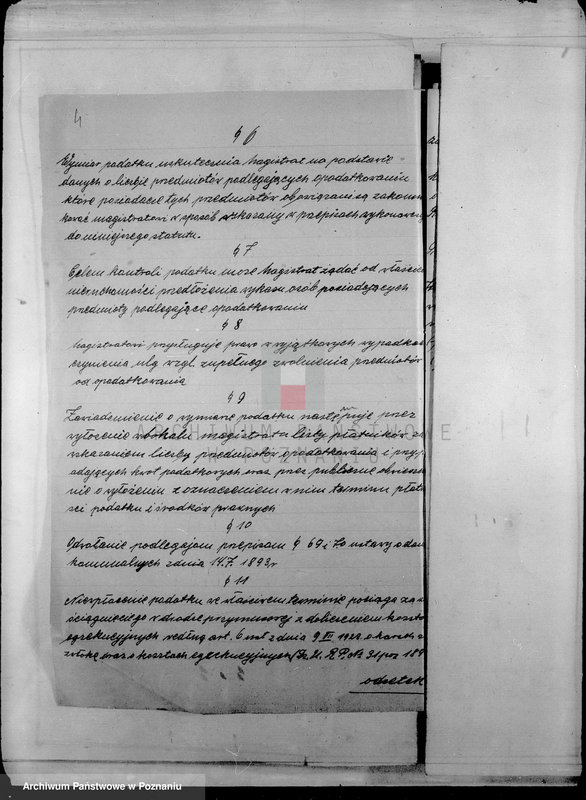 4
§ 6
Wymiar podatku uskutecznia Magistrat na podstawie
danych o liczbie przedmiotów podlegających opodatkowaniu
które posiadacze tych przedmiotów obowiązani są zakomuni
kować magistratowi w sposób wskazany w przepisach wykonawczy
do niniejszego statutu.
§ 7
Celem kontroli podatku może Magistrat żądać od właścic
nieruchomości przedłożenia wykazu osób posiadających
przedmioty podlegające opodatkowaniu
§ 8
Magistratowi przysługuje prawo w wyjątkowych wypadkac
czynienia ulg wzgl. zupełnego zwolnienia przedmiotów
od opodatkowania
§ 9
Zawiadomienie o wymiarze podatku następuje przez
wyłożenie w lokalu magistratu listy płatników ze
wskazaniem liczby przedmiotów opodatkowania i przyp
adających kwot podatkowych oraz przez publiczne obwieszcze
nie o wyłożeniu z oznaczeniem w nim terminu płatno
ści podatku i środków prawnych
§ 10
Odwołanie podlegają przepisom § 69 i 70 ustawy o dan
komunalnych z dnia 14.7. 1893 r
§ 11
Niezapłacenie podatku we właściwym terminie pociąga za s
ściągnięcie go w drodze przymusowej z doliczeniem koszto
egzekucyjnych według art. 6 ust z dnia 9 III 1923 o karach za
zwłokę oraz o kosztach egzekucyjnych (Dz. U. R.P. Nr 31 poz 189
odsetek
ARCHIWUM PAŃSTWOWE
W POZNANIU
Archiwum Państwowe w Poznaniu